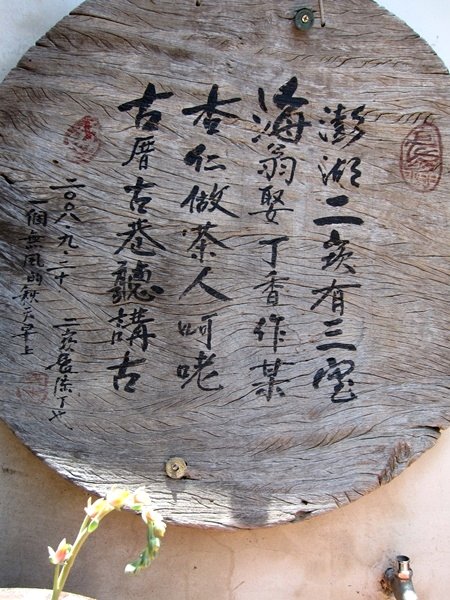 澎湖二崁有三寶
海翁娶丁香作某
杏仁做茶人呵咾
古厝古巷聽講古
二〇〇八.九.二十 二崁
一個無風的秋天早上